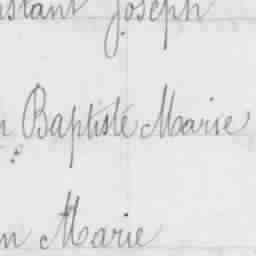 stant Joseph
n Baptiste Marie
n Marie